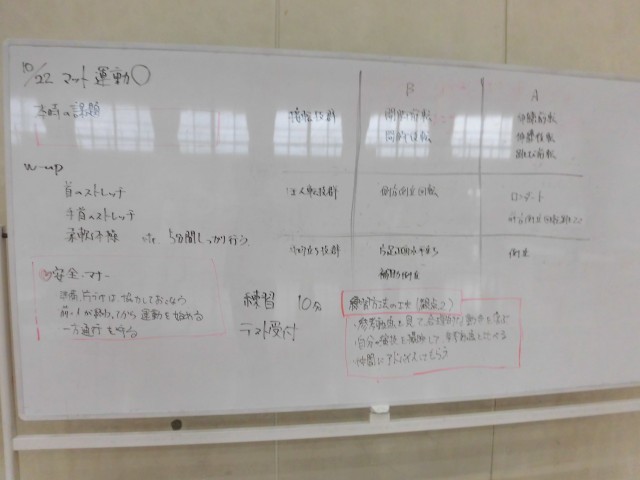 10/22 マット運動○
本時の課題
W-up
首のストレッチ
手首のストレッチ
柔軟体操 5分間しっかり行う。
安全・マナー
準備、片づけは協力しておこなう
前の人が終わってから運動を始める
一方通行を守る
B
A
接転技群
開脚前転
伸膝前転
開脚後転
伸膝後転
跳び込み前転
ほん転技群
側方倒立回転
ロンダート
平均立ち技群
片足正面水平立ち
倒立
補助倒立
練習 10分
テスト受付
練習方法の工夫(観点2)
・参考動画を見て合理的な動きを学ぶ
・自分の演技を撮影して参考動画と比べる
・仲間にアドバイスをもらう